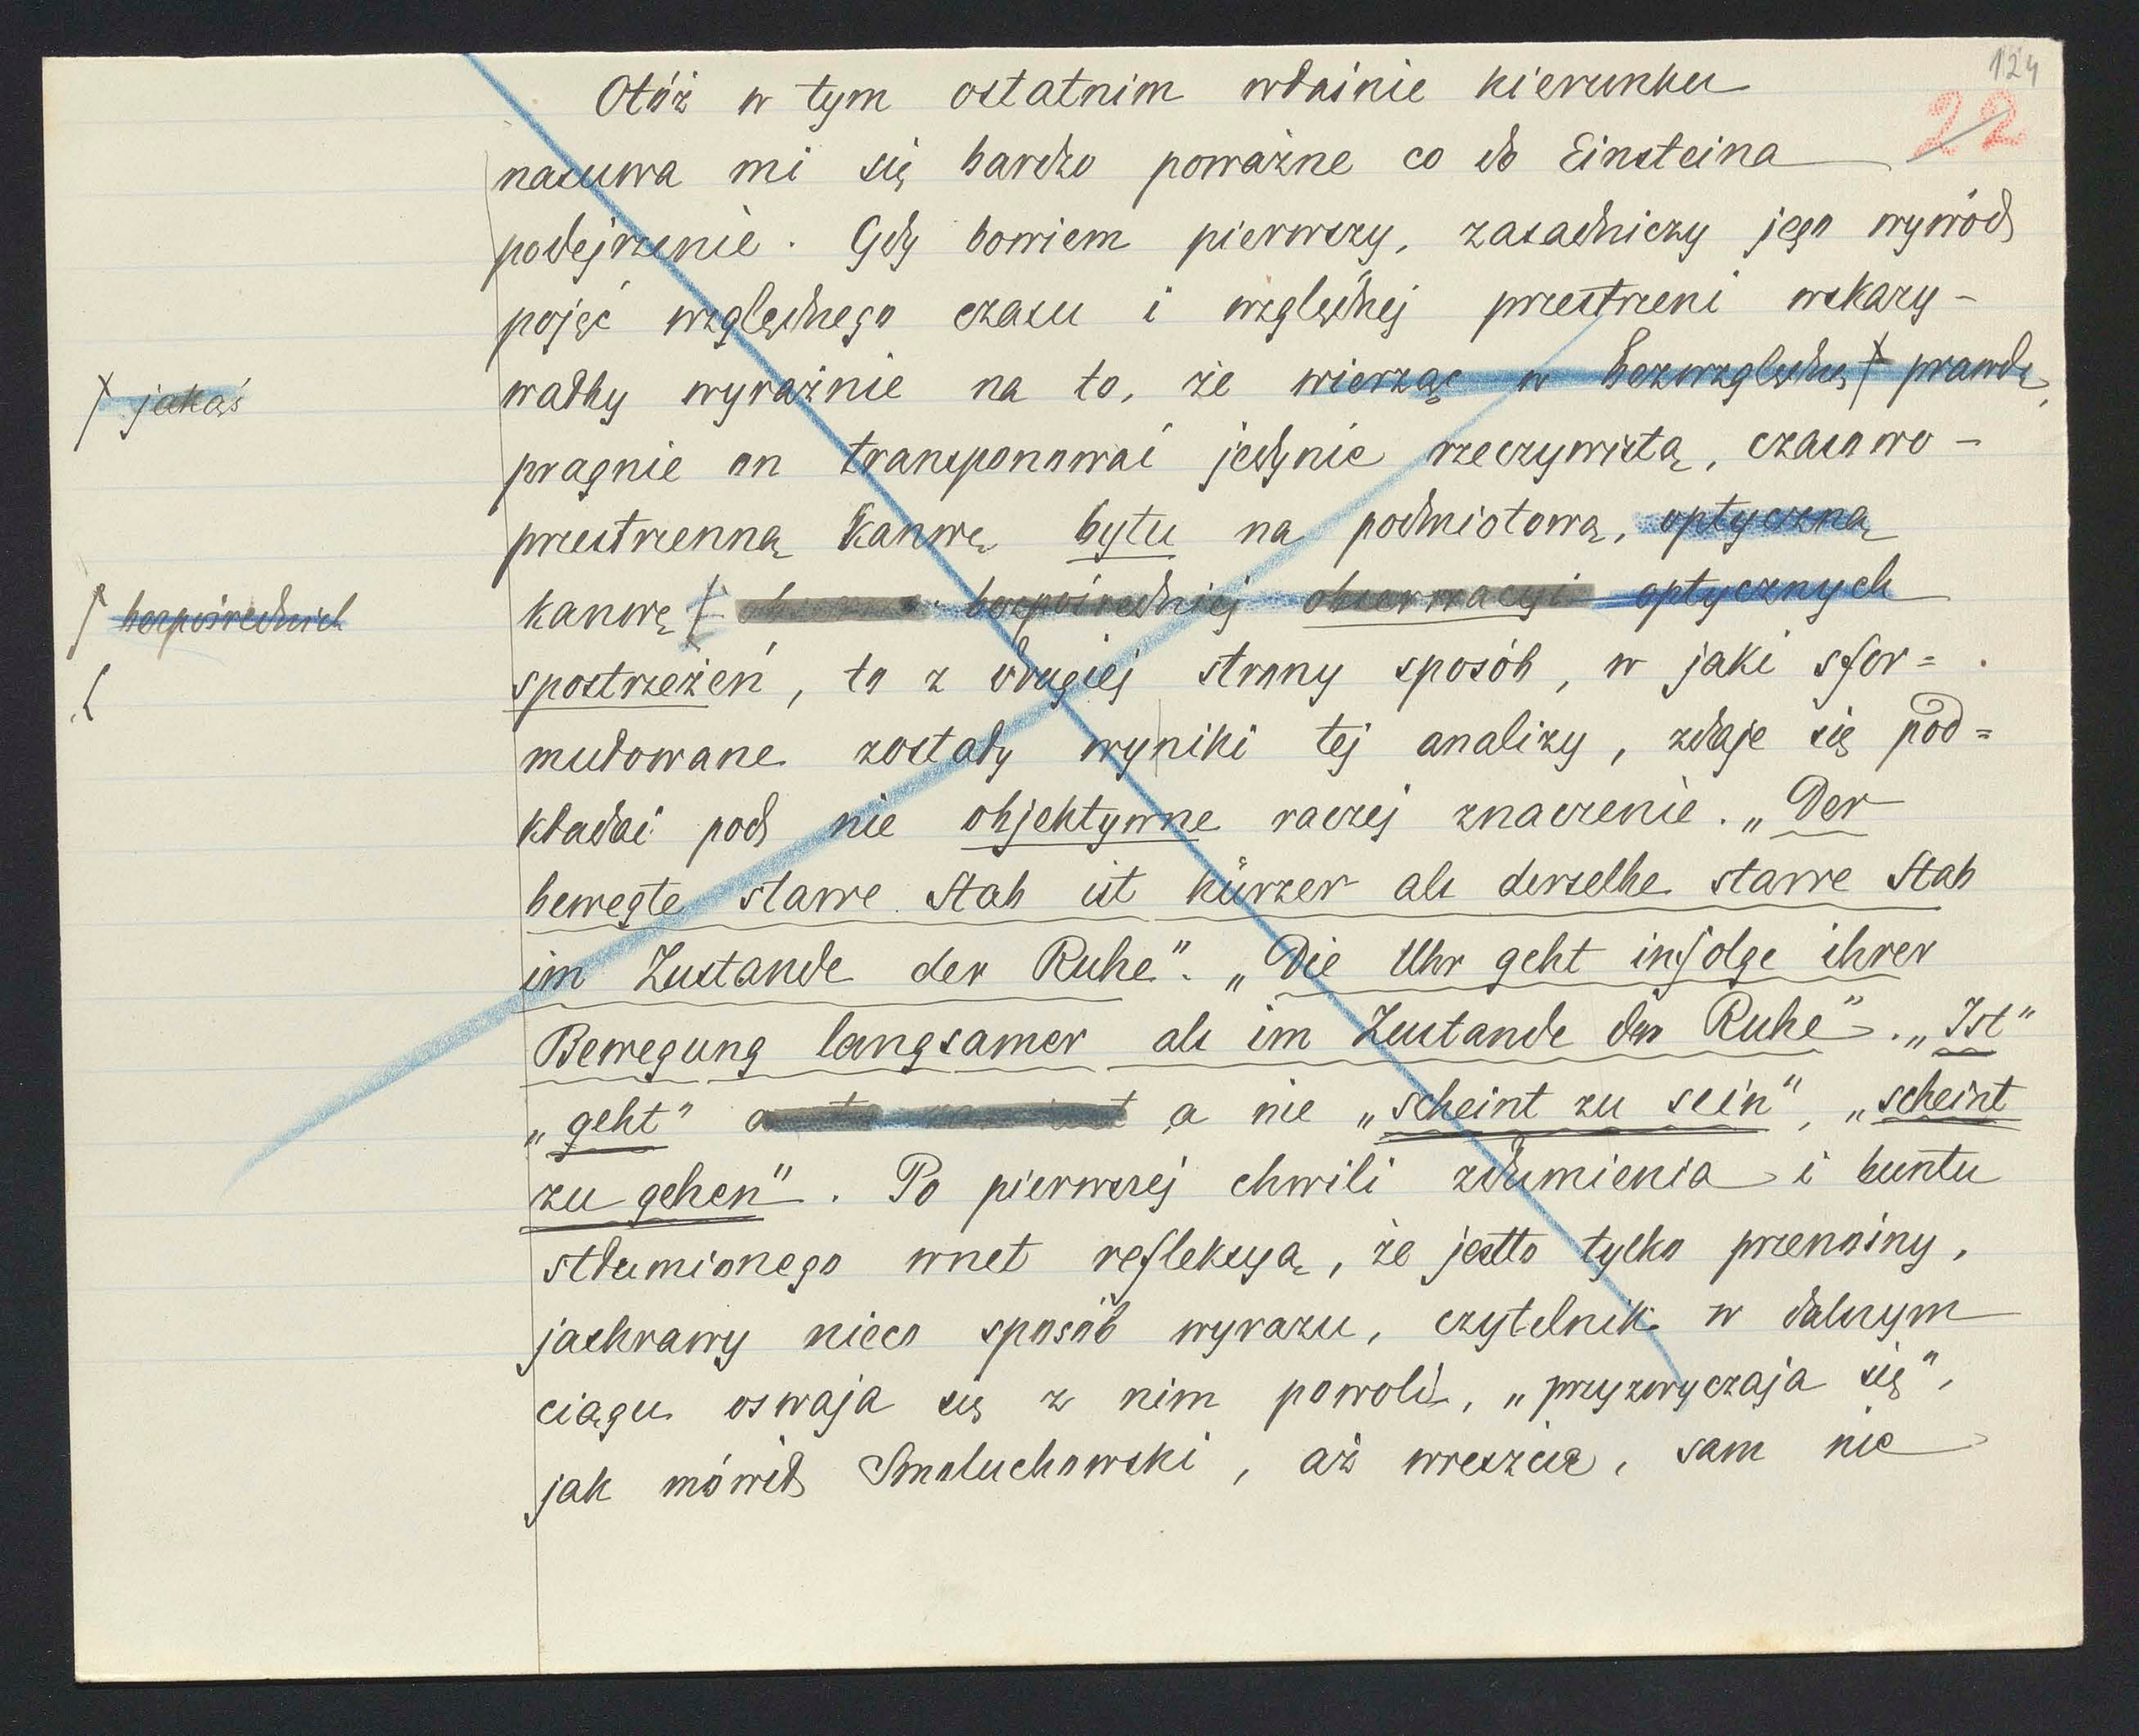 124
22
Otóż w tym ostatnim właśnie kierunku
nasuwa mi się bardzo poważne co do Einsteina
podejrzenie. Gdy bowiem pierwszy, zasadniczy jego wywód
pojęć względnego czasu i względnej przestrzeni wskazy-
wałby wyraźnie na to, że wierząc w bezwzględną ⌈ prawdę,
⌈ jakąś
pragnie on transponować jedynie rzeczywistą, czasowo-
przestrzenną kanwę bytu na podmiotową, optyczną
kanwę ⌈ bezpośredniej obserwacyi optycznych
⌈ bezpośrednich
spostrzeżeń, to z drugiej strony sposób, w jaki sfor=
mułowane zostały wyniki tej analizy, zdaje się pod=
kładać pod nie objektywne raczej znaczenie. „Der
bewegte starre Stab ist kürzer als derselbe starre Stab
im Zustande der Ruhe". „Die Uhr geht infolge ihrer
Bewegung langsamer als im Zustande der Ruhe". „Ist"
„geht" a nie „scheint zu sein", „scheint
zu gehen". Po pierwszej chwili zdumienia i buntu
stłumionego wnet refleksyą, że jestto tylko przenośny,
jaskrawy nieco sposób wyrazu, czytelnik w dalszym
ciągu oswaja się z nim powoli, „przyzwyczaja się",
jak mówił Smoluchowski, aż wreszcie, sam nie